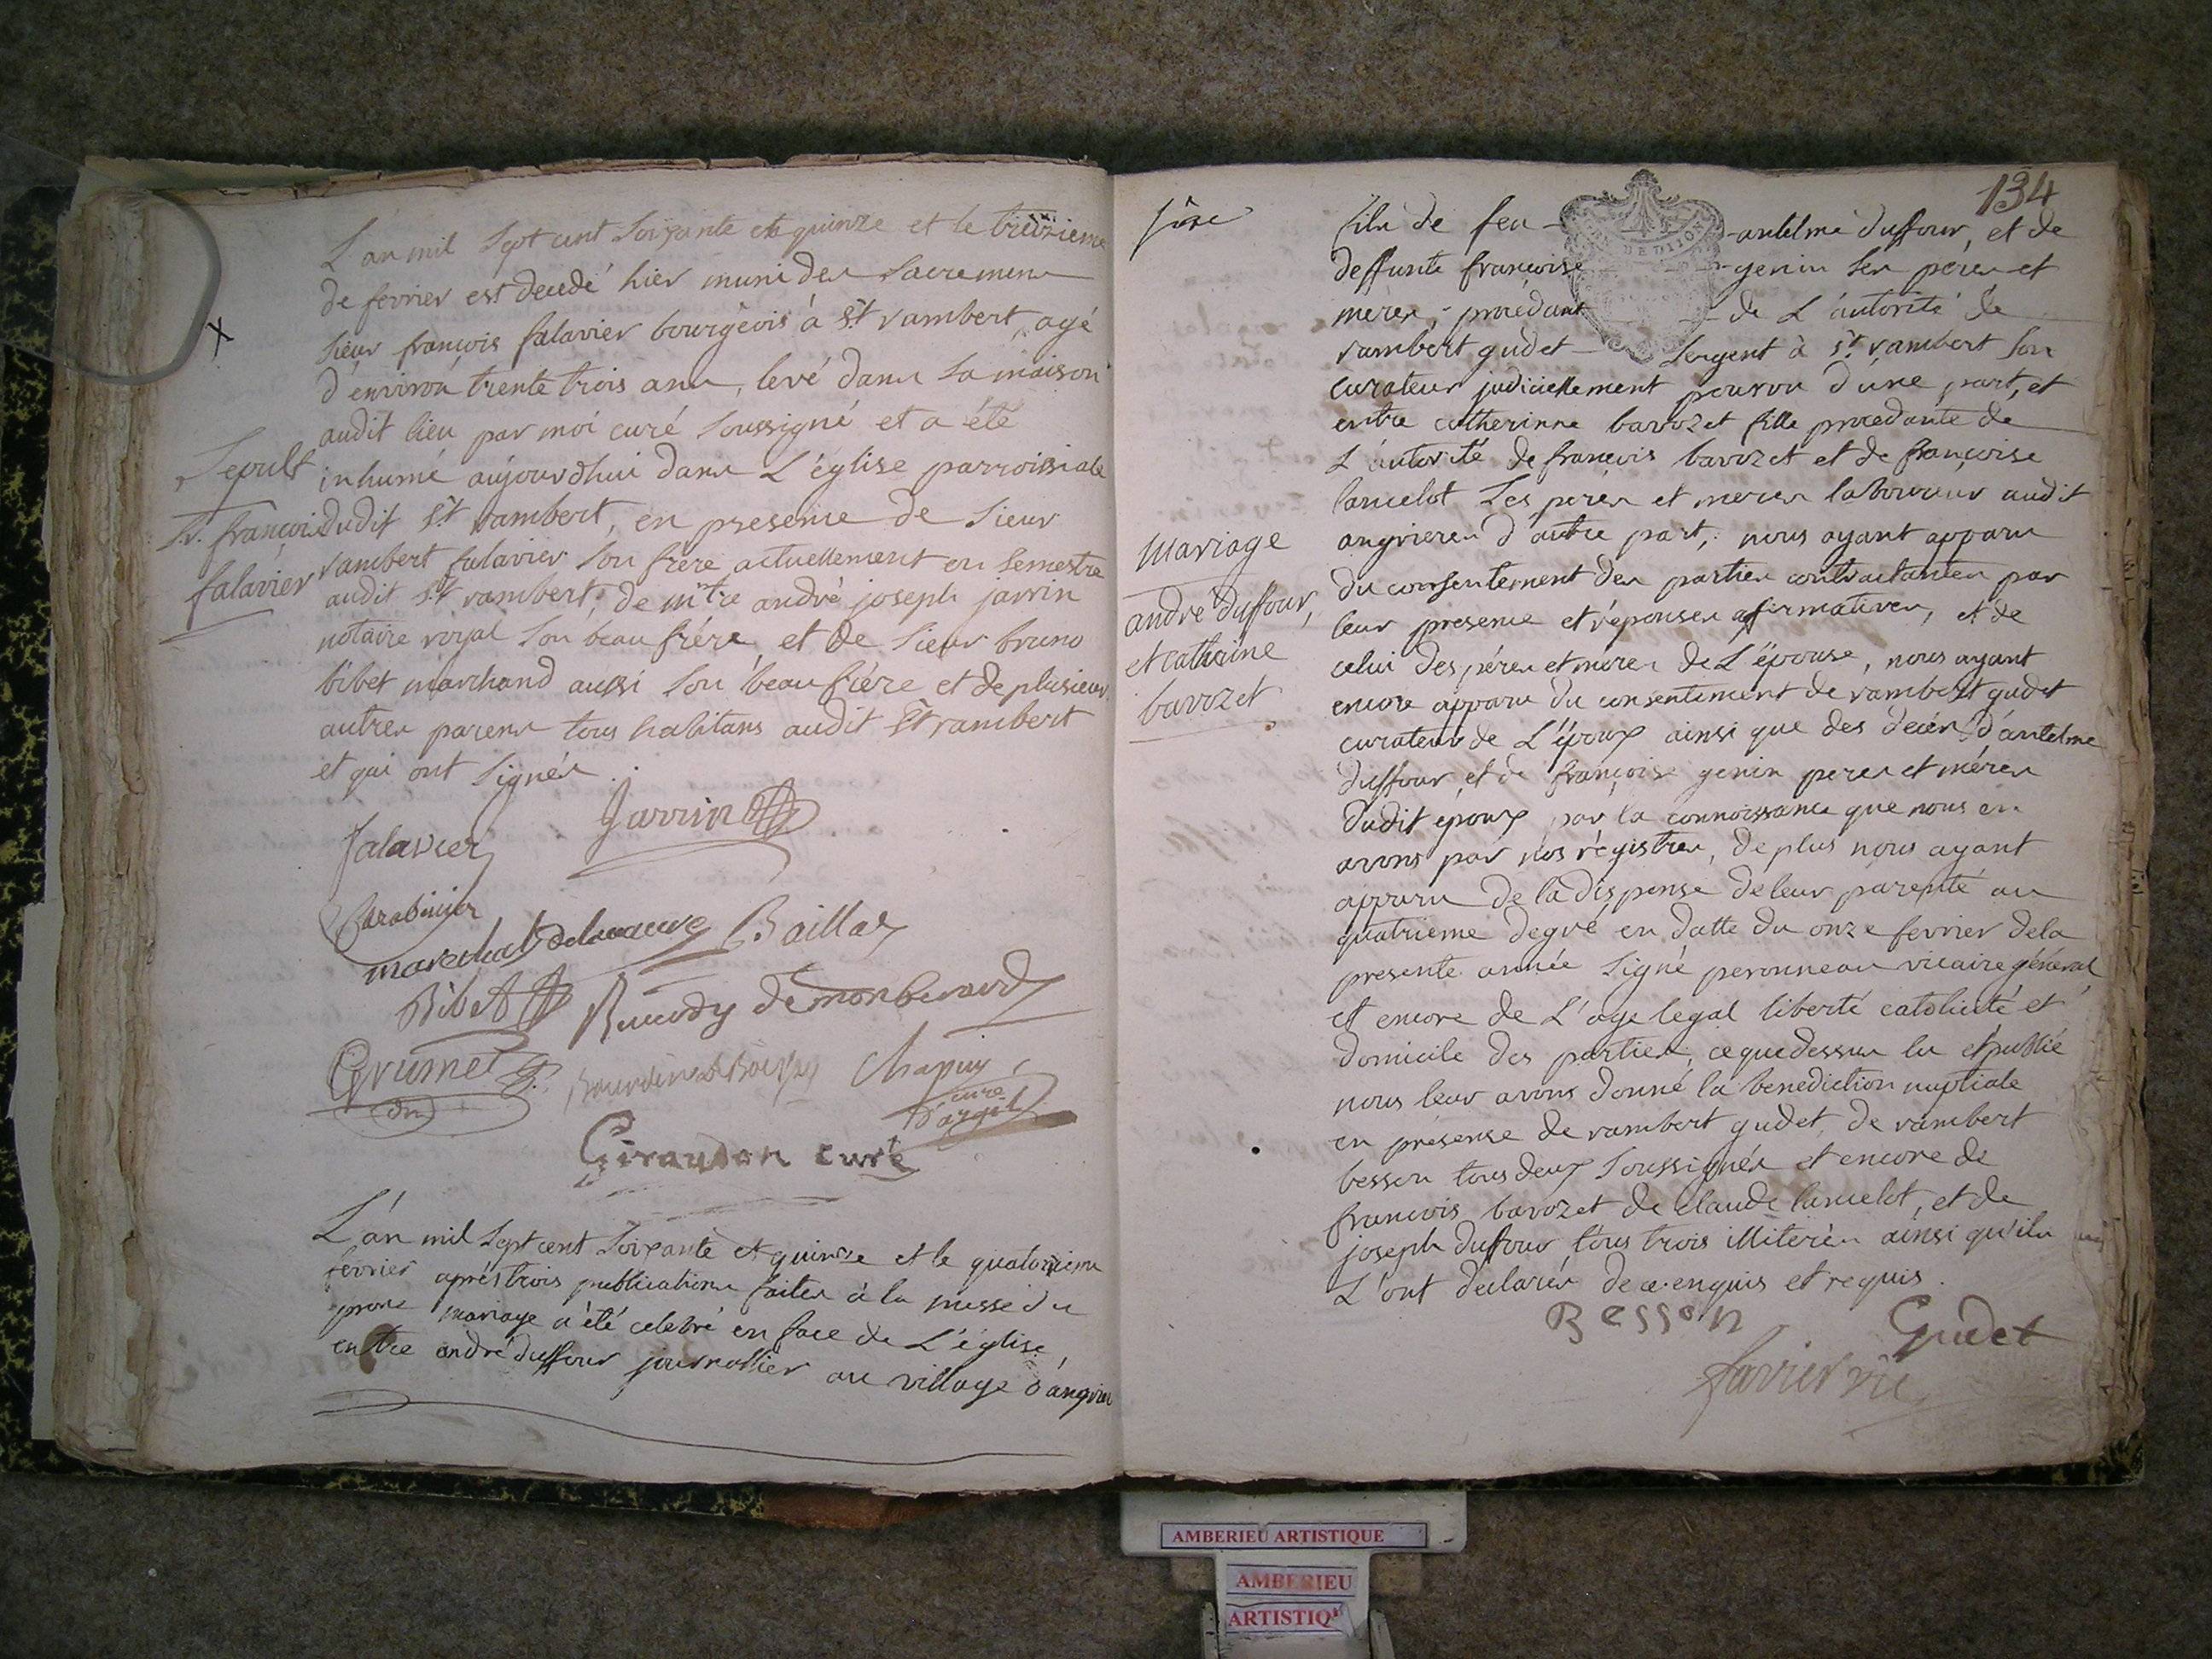 L'an mil sept cent soixante et quinze et le treizieme
de fevrier est decedé hier muni des sacremens
sieur françois falavier bourgeois à St rambert, agé
d'environ trente trois ans, levé dans sa maison
audit lieu par moi curé soussigné et a été
inhumé aujourdhui dans L'église parroissiale
dudit St rambert, en presense de sieur
rambert falavier son frere actuellement en semestre
audit St rambert, de mtre andré joseph jarrin
notaire royal son beau frére, et de sieur bruno
bibet marchand aussi son beau frére et de plusieurs
autres parens tous habitans audit St rambert
et qui ont signés.
Sepult
Sr. françois
falavier
falavier
Jarrin
Carabinier
marechal delavauve Baillod
Bibet
demonberard
Grumet
Chapuy
curé
d'argit
Giraudon curé
L'an mil sept cent soixante et quinze et le quatorzieme
fevrier aprés trois publications faites à la messe du
prone mariage a été celebré en face de L'église,
entre andré duffour journallier au village d'angrieres
134
DE DIJON
fils de feu antelme duffour, et de
deffunte françoise genin ses peres et
méres, procédant de L'autorité de
rambert gudet sergent à St rambert son
curateur judiciellement pourvu d'une part, et
entre catherinne bavozet fille procedante de
L'autorité de françois bavozet et de françoise
lancelot ses peres et meres laboureurs audit
angrieres d'autre part, nous ayant apparu
du consentement des parties contractantes par
leur presense et réponses affirmatives, et de
celui des péres et méres de L'épouse, nous ayant
encore apparu du consentement de rambert gudet
curateur de L'époux ainsi que des décés d'antelme
duffour, et de françoise genin peres et méres
dudit époux par la connoissance que nous en
avons par nos régistres, de plus nous ayant
apparu de la dispense de leur parenté au
quatrieme degré en datte du onze fevrier de la
presente année signé peronneau vicaire général,
et encore de L'age legal liberté catolicité et
domicile des parties, ce que dessus lu et publié
nous leur avons donné la benediction nuptiale
en présense de rambert gudet, de rambert
besson tous deux soussignés et encore de
francois bavozet de claude lancelot, et de
joseph duffour tous trois illiterés ainsi qu'ils
L'ont declarés de ce enquis et requis.
Mariage
andré duffour,
et catherine
bavozet
Besson
Gudet
favier vic
AMBERIEU ARTISTIQUE
AMBERIEU
ARTISTIQ